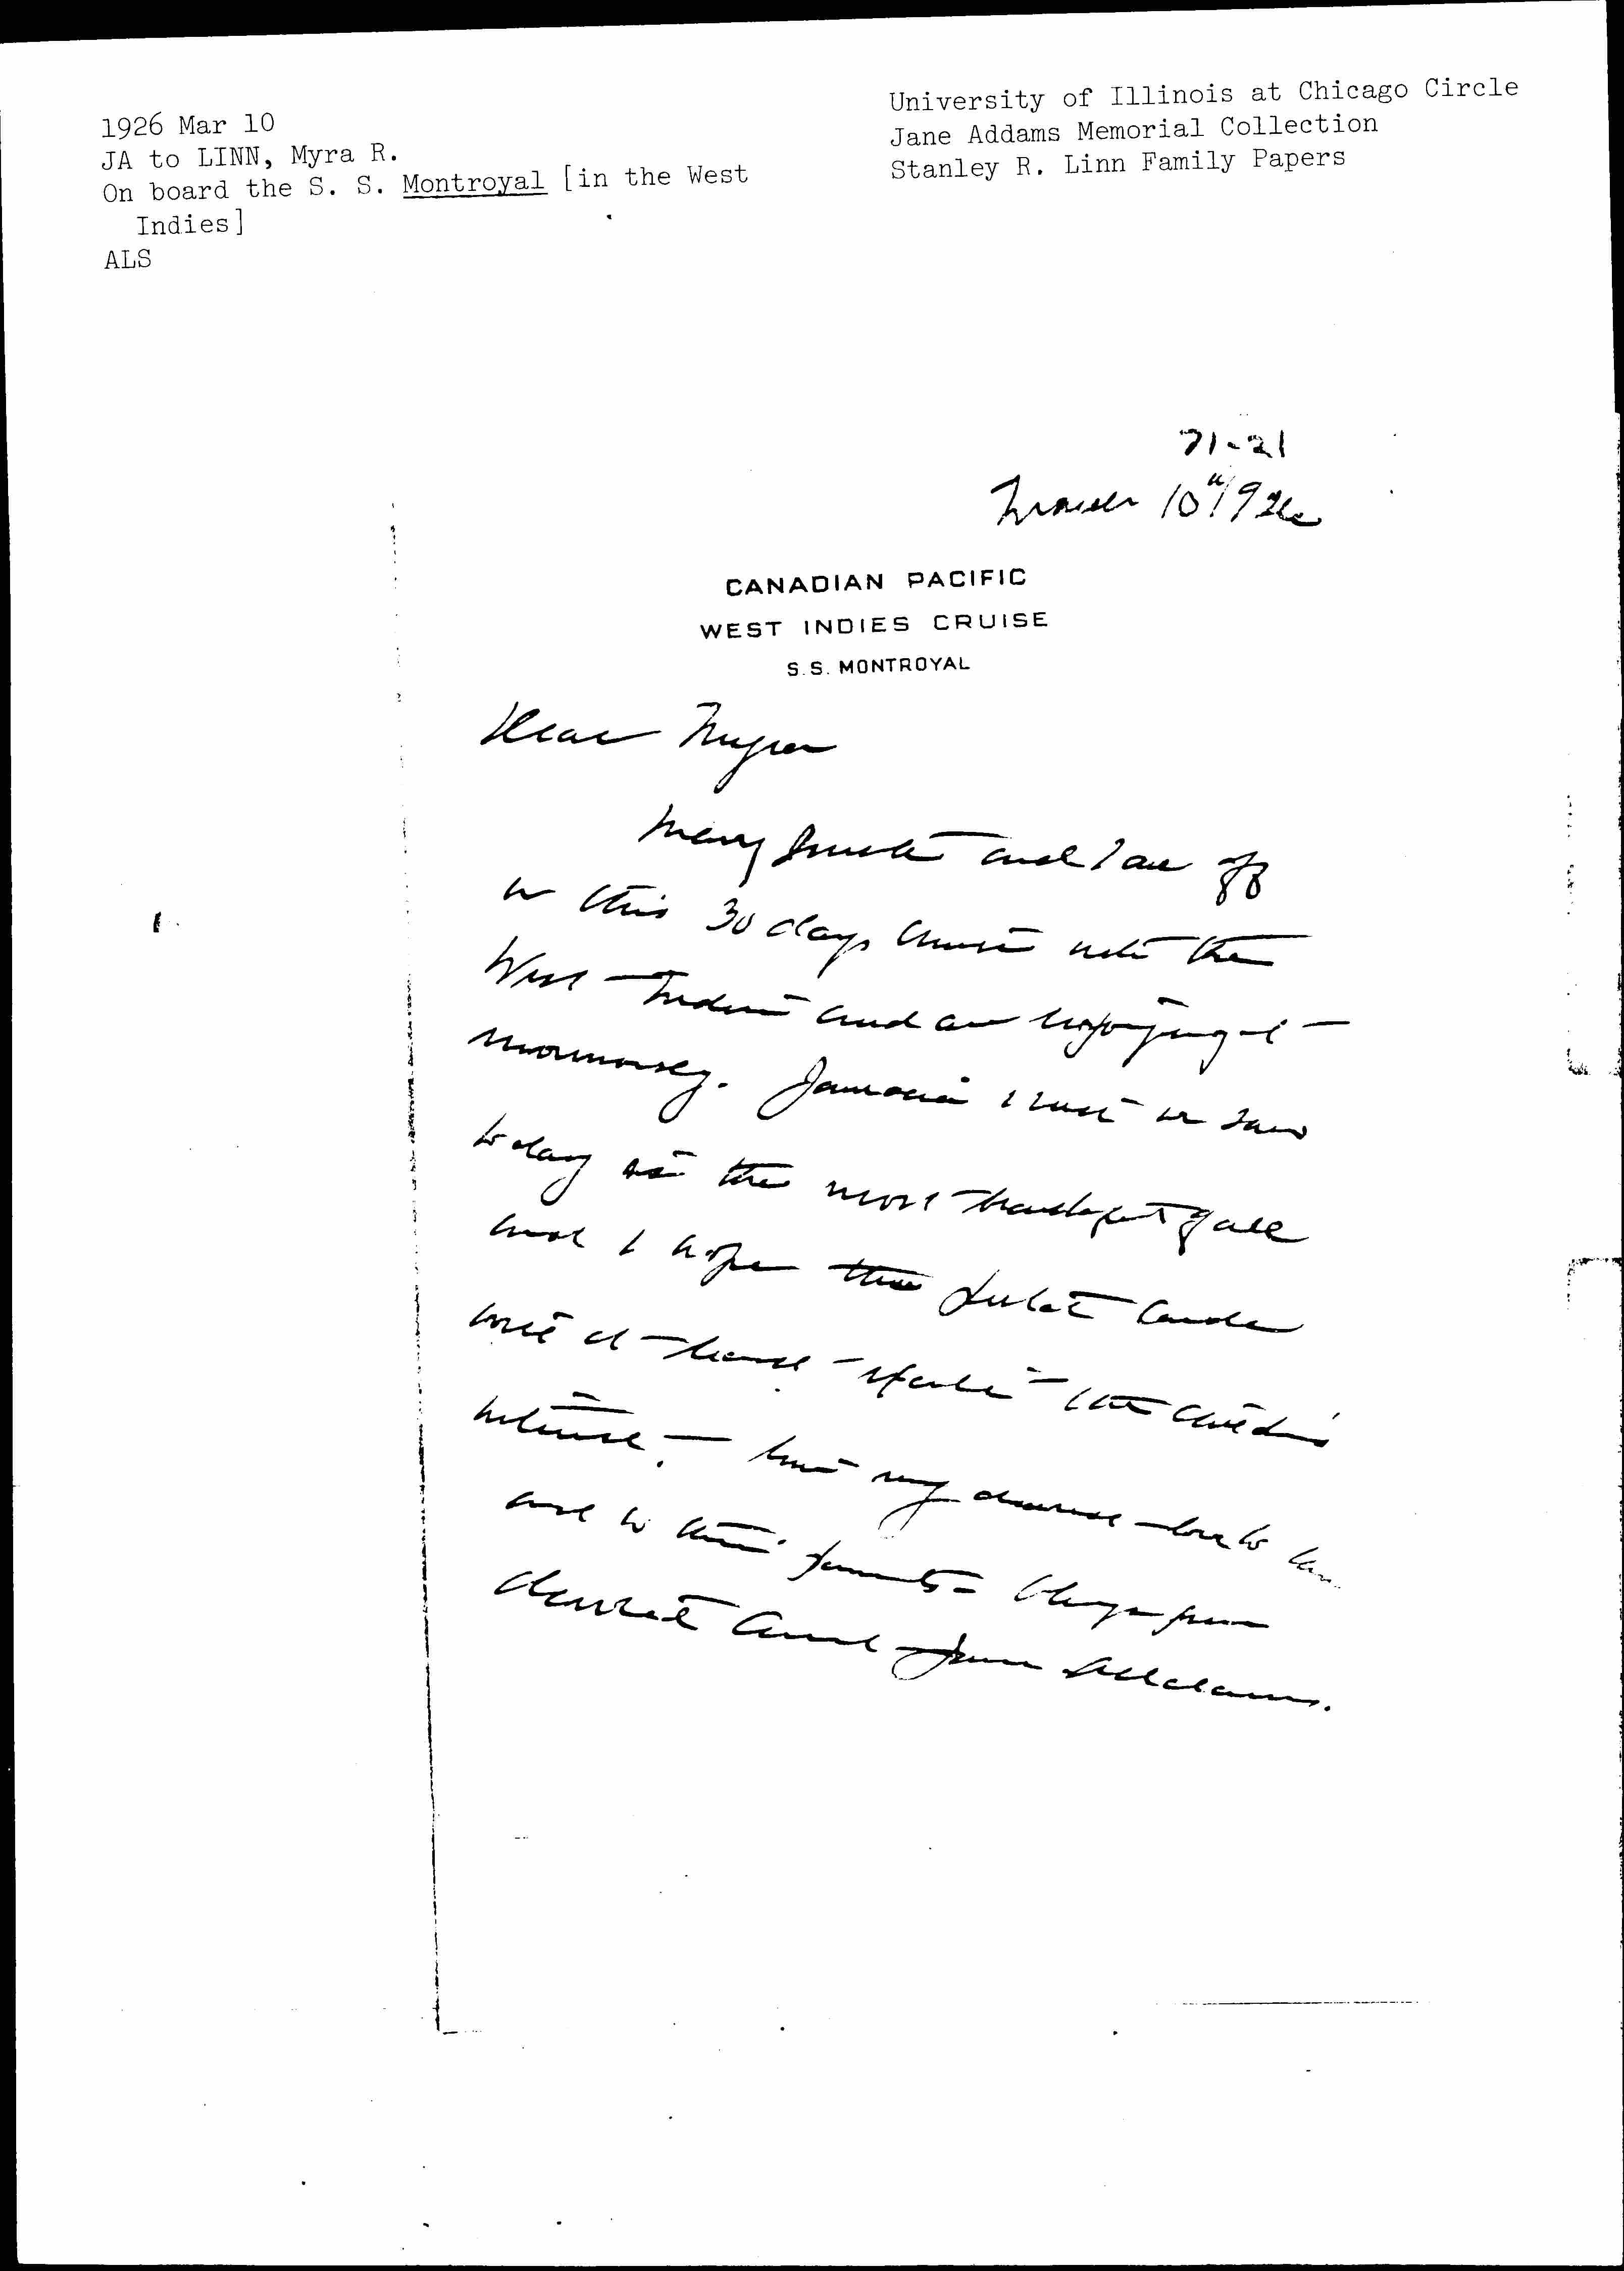 1926 Mar 10
JA to LINN, Myra R.
On board the S. S. Montroyal [in the West
Indies]
ALS
University of Illinois at Chicago Circle
Jane Addams Memorial Collection
Stanley R. Linn Family Papers
71-21
March 10" 1926
CANADIAN PACIFIC
WEST INDIES CRUISE
S.S. MONTROYAL
Dear Myra
Mary Smith and I are off
on this 30 days cruise into the
West Indies and are enjoying it
enormously. Jamaica which we saw
today was the most beautiful of all
and I hope
it
my dearest love to
and to their parents. Always your
devoted Aunt Jane Addams.